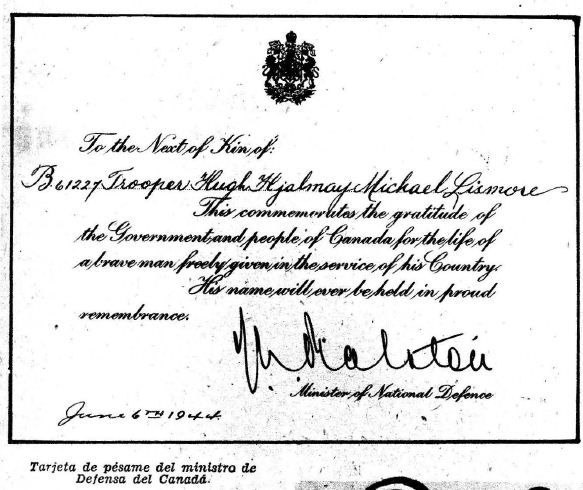 To the Next of Kin of:
B.61227 Trooper Hugh Hjalmay Michael Lismore
This commemorates the gratitude of
the Government and people of Canada for the life of
a brave man freely given in the service of his Country.
His name will ever be held in proud
remembrance.
Ralston
Minister of National Defence
June 6TH 1944
Tarjeta de pésame del ministro de
Defensa del Canadá.